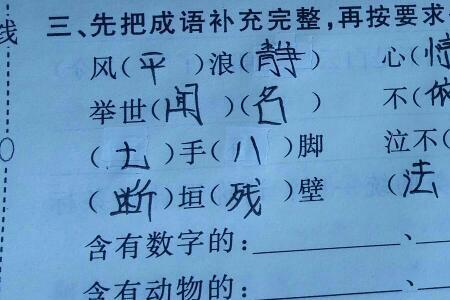 线
三、先把成语补充完整,再按要求
风(平)浪(静) 心(惊
举世(闻)(名) 不(依
(七)手(八)脚 泣不(
(断)垣(残)壁 (法
含有数字的:________、
含有动物的:________、